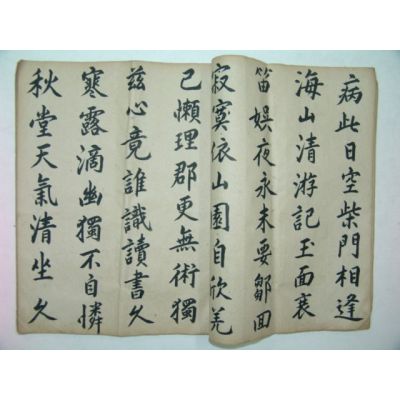 病此日空柴門相逢
海山清游記玉面裏
笛娱夜永未要鄒回
寂寞依山園自欣羌
已懶理郡更無術獨
兹心竟誰識讀書久
寒露滴幽獨不自憐
秋堂天氣清坐久